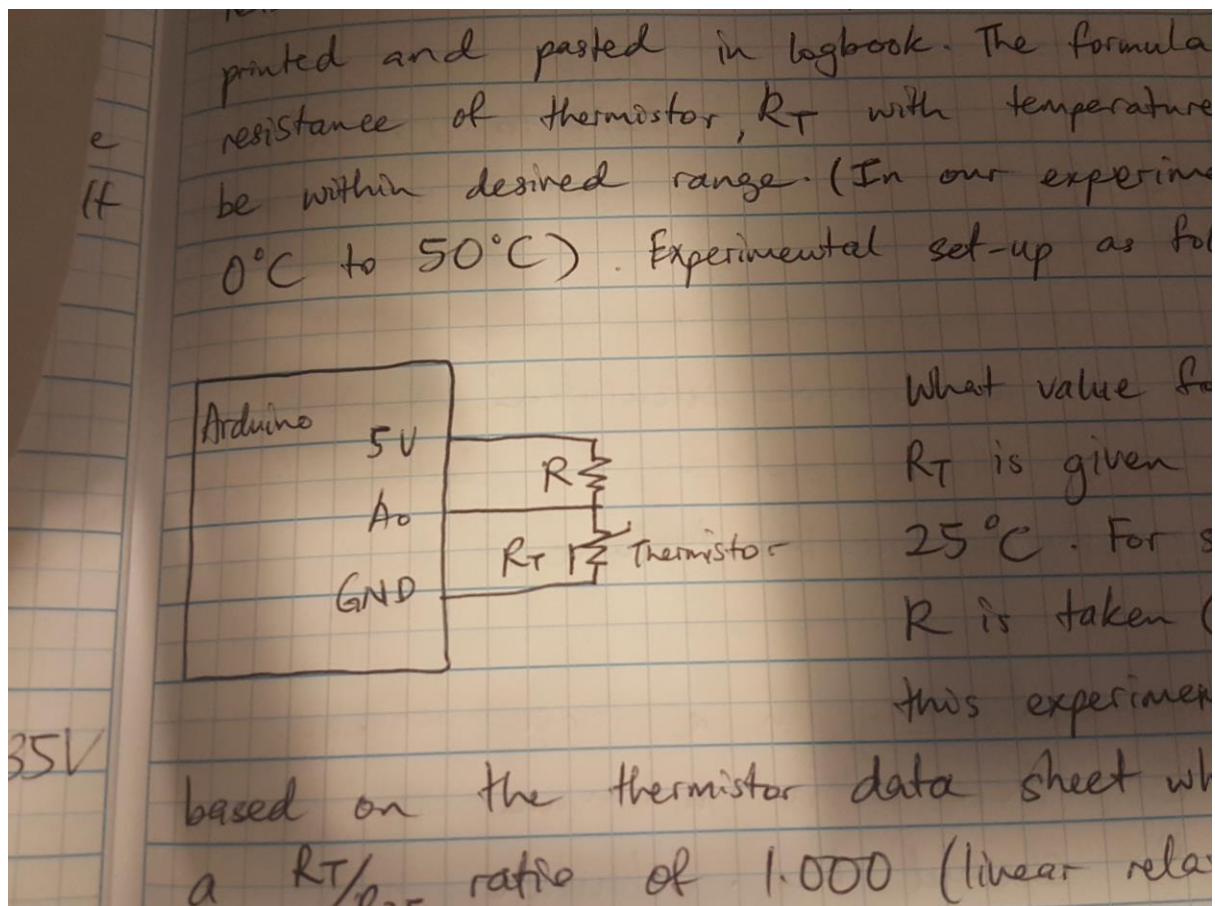 printed and pasted in logbook. The formula
resistance of thermistor, RT with temperature
be within desired range. (In our experime
0°C to 50°C). Experimental set-up as fol
e
If
Arduino
5V
A0
GND
R
RT
Thermistor
What value fo
RT is given
25°C. For s
R is taken (
this experimen
35V
based on the thermistor data sheet wh
a RT/ ratio of 1.000 (linear rela